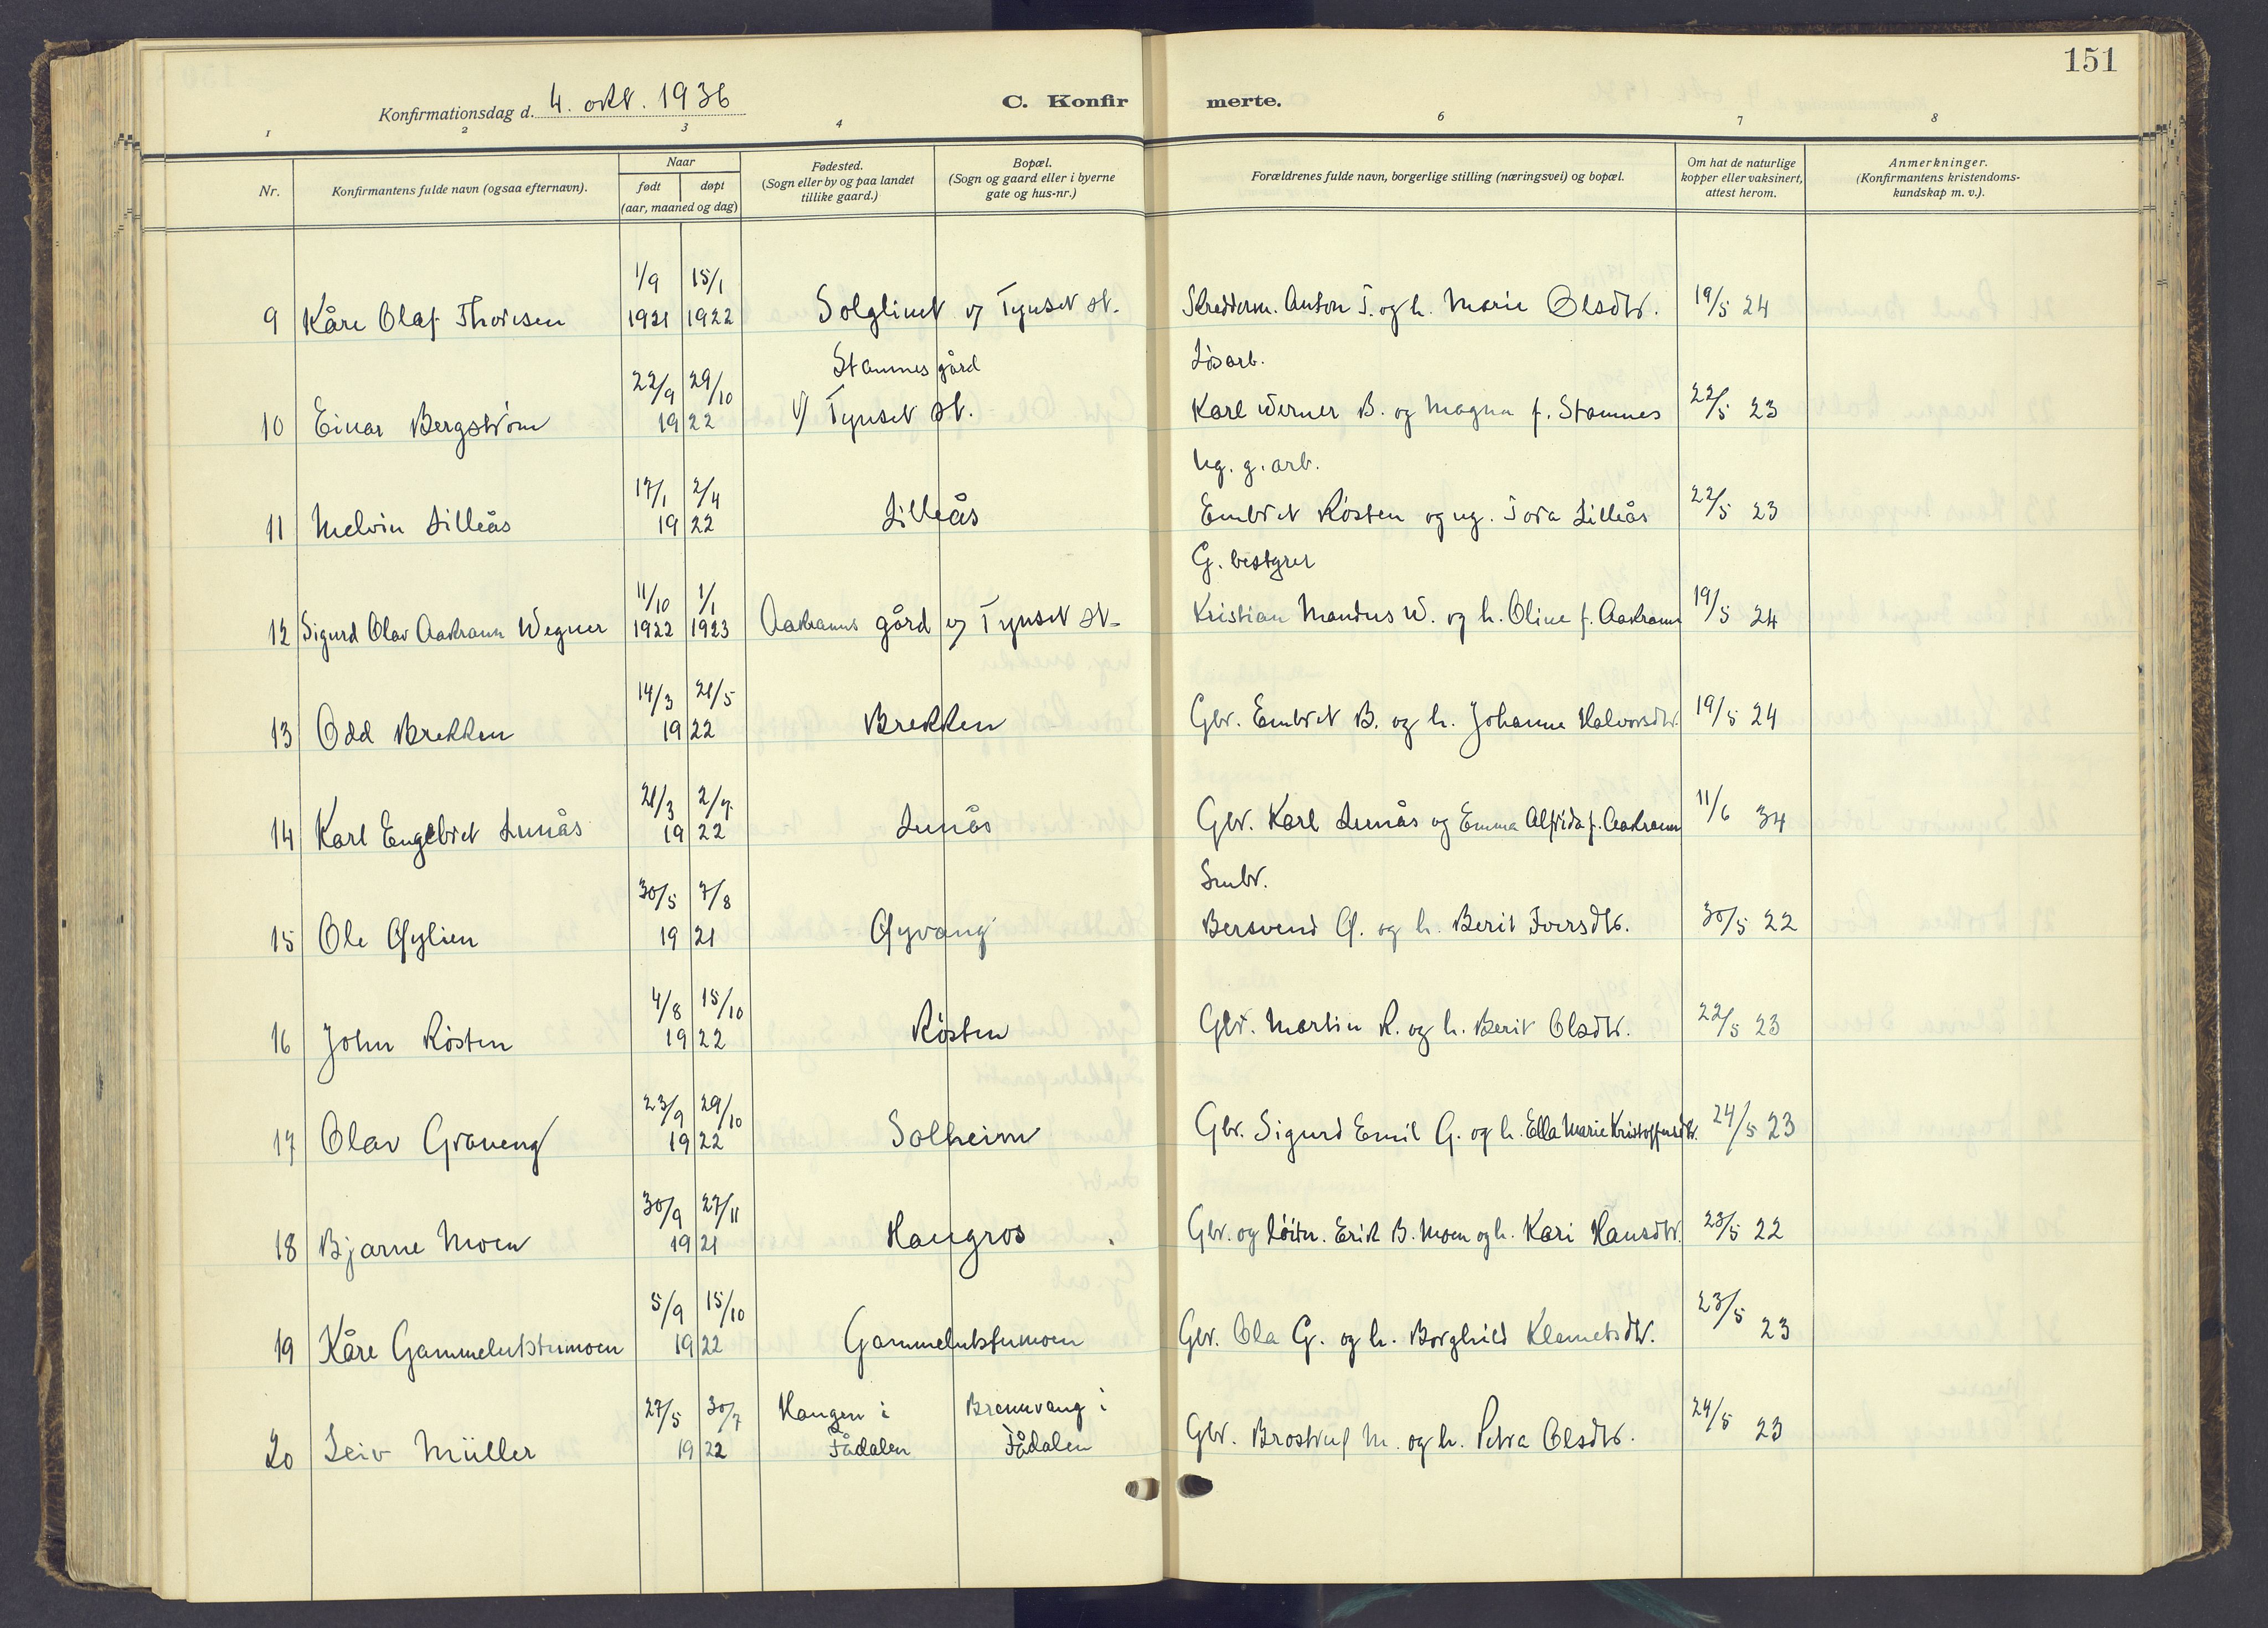 151
Konfirmationsdag d. 4. okt. 1936
C. Konfir merte.
1 2 3 4 6 7 8
Nr.
Konfirmantens fulde navn (ogsaa efternavn).
Naar
født døpt
(aar, maaned og dag)
Fødested.
(Sogn eller by og paa landet
tillike gaard.)
Bopæl.
(Sogn og gaard eller i byerne
gate og hus-nr.)
Forældrenes fulde navn, borgerlige stilling (næringsvei) og bopæl.
Om hat de naturlige
kopper eller vaksinert,
attest herom.
Anmerkninger.
(Konfirmantens kristendoms-
kundskap m. v.).
1/9 15/1
9 Kåre Olaf Thoresen 1921 1922 Solglimt v/ Tynset st. Skredderm. Anton T. og h. Marie Olsdtr. 19/5 24
22/9 29/10 Stamnes gård Løsarb.
10 Einar Bergström 1922 v/ Tynset st. Karl Werner B. og Magna f. Stamnes 22/5 23
17/1 2/4 Ug. g. arb.
11 Melvin Lilleås 1922 Lilleås Embret Røsten og ug. Tora Lilleås 22/5 23
11/10 1/1 G. bestyrer
12 Sigurd Olav Aakrann Wegner 1922 1923 Aakranns gård v/ Tynset st. Kristian Mandus W. og h. Oline f. Aakrann 19/5 24
14/3 21/5
13 Odd Brekken 1922 Brekken Gbr. Embret B. og h. Johanne Halvorsdtr. 19/5 24
21/3 2/7
14 Karl Engelbret Lunås 1922 Lunås Gbr. Karl Lunås og Emma Alfrida f. Aakrann 11/6 34
30/5 7/8 Smbr.
15 Ole Øylien 1921 Øyvang Bersvend Ø. og h. Berit Iversdtr. 30/5 22
4/8 15/10
16 John Røsten 1922 Røsten Gbr. Martin R. og h. Berit Olsdtr. 22/5 23
23/9 29/10
17 Olav Graneng 1922 Solheim Gbr. Sigurd Emil G. og h. Ella Marie Kristoffersdtr. 24/5 23
30/9 27/11
18 Bjarne Moen 1921 Haugros Gbr. og løitn. Erik B. Moen og h. Kari Hansdtr. 23/5 22
5/9 15/10
19 Kåre Gammelutstumoen 1922 Gammelutstumoen Gbr. Ola G. og h. Borghild Klemetsdtr. 23/5 23
27/5 30/7 Haugen i Brennvang i
20 Leiv Müller 1922 Fådalen Fådalen Gbr. M. og h. Petra Olsdtr. 24/5 23